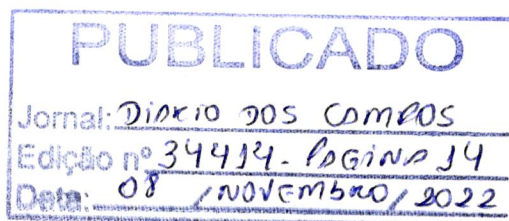 PUBLICADO
Jornal: DIARIO DOS CAMPOS
Edição nº 34414 - PAGINA 14
Data: 08 / NOVEMBRO / 2022